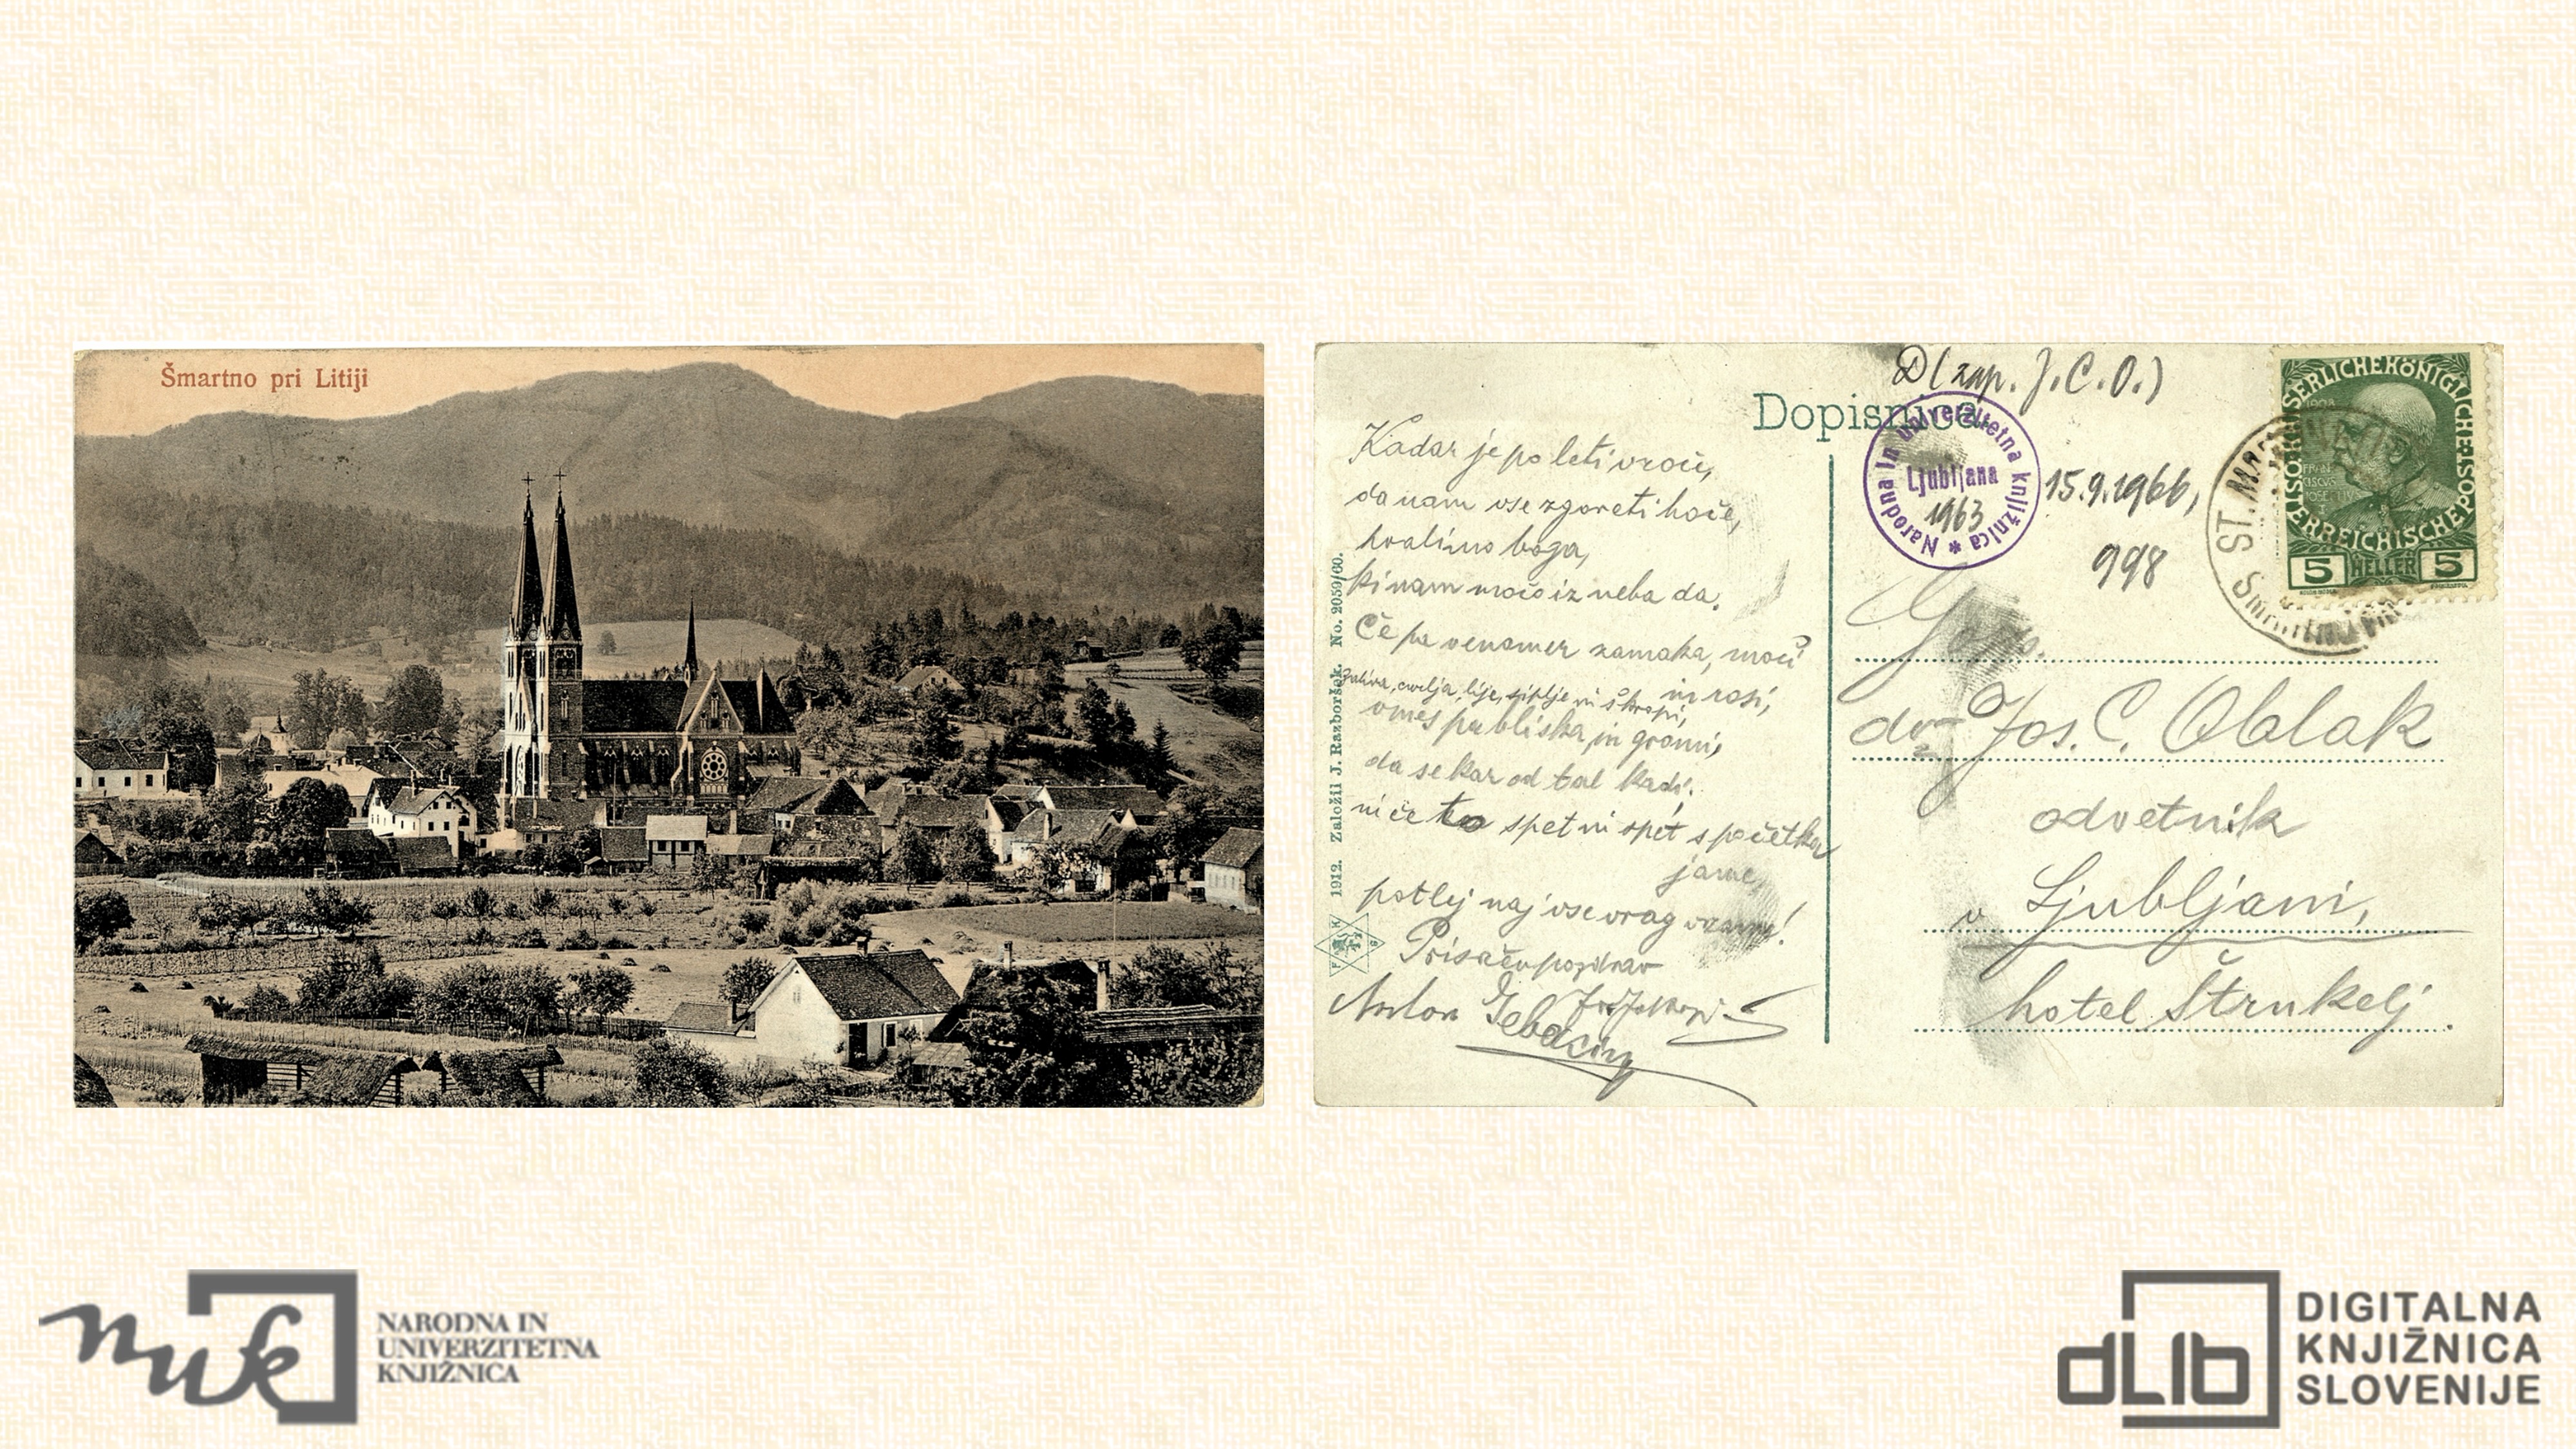 Šmartno pri Litiji
D (zap. J. C. O.)
Dopisnica.
Narodna in univerzitetna knjižnica *
Ljubljana
1963
15.9.1966,
998
ST. MAR
Šmart
KAISERLICHE KÖNIGLICHE ÖSTERREICHISCHE POST
1908
5 HELLER 5
Kadar je po leti vroče,
da nam vse zgoreti hoče,
hvalimo boga,
ki nam močo iz neba da.
Če pa venomer zamaka, moči
in rosi,
zaliva, curlja, lije, siplje in škropi,
vmes pa bliska in gromi,
da se kar od tal kadi,
in če to spet in spet s početka
jame,
potlej naj vse vrag vzame!
Prisrčen pozdrav
Anton
Gosp.
dr. Jos. C. Oblak
odvetnik
v Ljubljani,
hotel Štrukelj.
1912. Založil J. Razboršek. No. 2059/60.
nuk
NARODNA IN
UNIVERZITETNA
KNJIŽNICA
dLib
DIGITALNA
KNJIŽNICA
SLOVENIJE